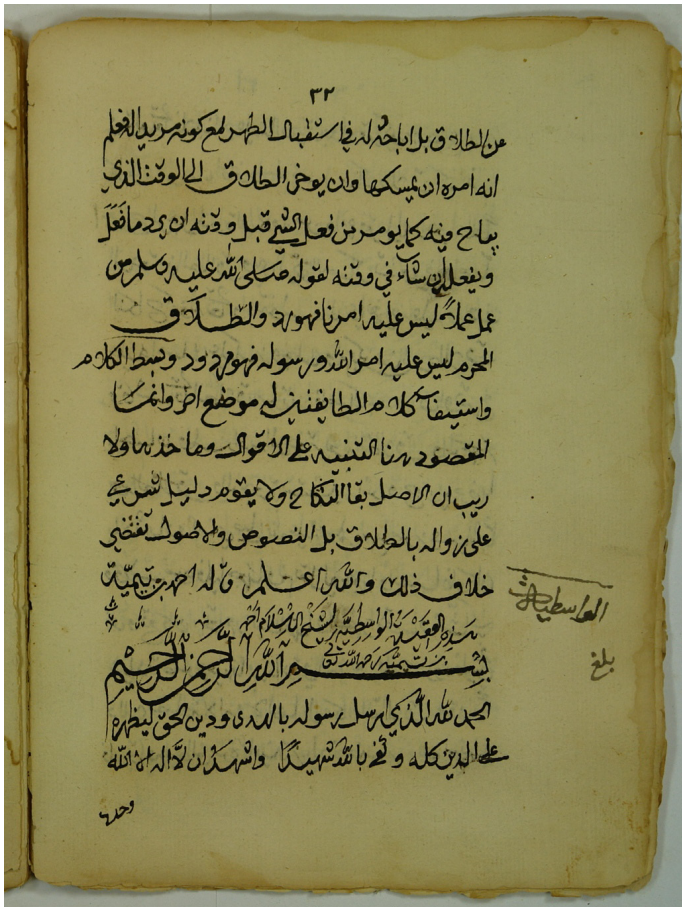 ٣٢
عن الطلاق بل اباحته له في استقبال الطهر مع كونه مريدا له فعلم
انه امره ان يمسكها وان يوخر الطلاق الى الوقت الذي
يباح فيه كما يومر من فعل الشي قبل وقته ان يرد ما فعل
ويفعله ان شاء في وقته لقوله صلى الله عليه وسلم من
عمل عملاً ليس عليه امرنا فهو رد والطلاق
المحرم ليس عليه امر الله ورسوله فهو مردود وبسط الكلام
واستيفاء كلام الطايفتين له موضع اخر وانما
المقصود هنا التنبيه على الاقوال وماخذها ولا
ريب ان الاصل بقا النكاح ولا يقوم دليل شرعي
على زواله بالطلاق بل النصوص والاصول تقتضي
خلاف ذلك والله اعلم قاله احمد بن تيمية
هذه العقيدة الواسطية لشيخ الاسلام احمد
بن تيمية رحمه الله تعالى
بسم الله الرحمن الرحيم
الحمد لله الذي ارسل رسوله بالهدى ودين الحق ليظهره
على الدين كله وكفى بالله شهيدًا واشهد ان لا اله الا الله
وحده
الواسطية
بلغ